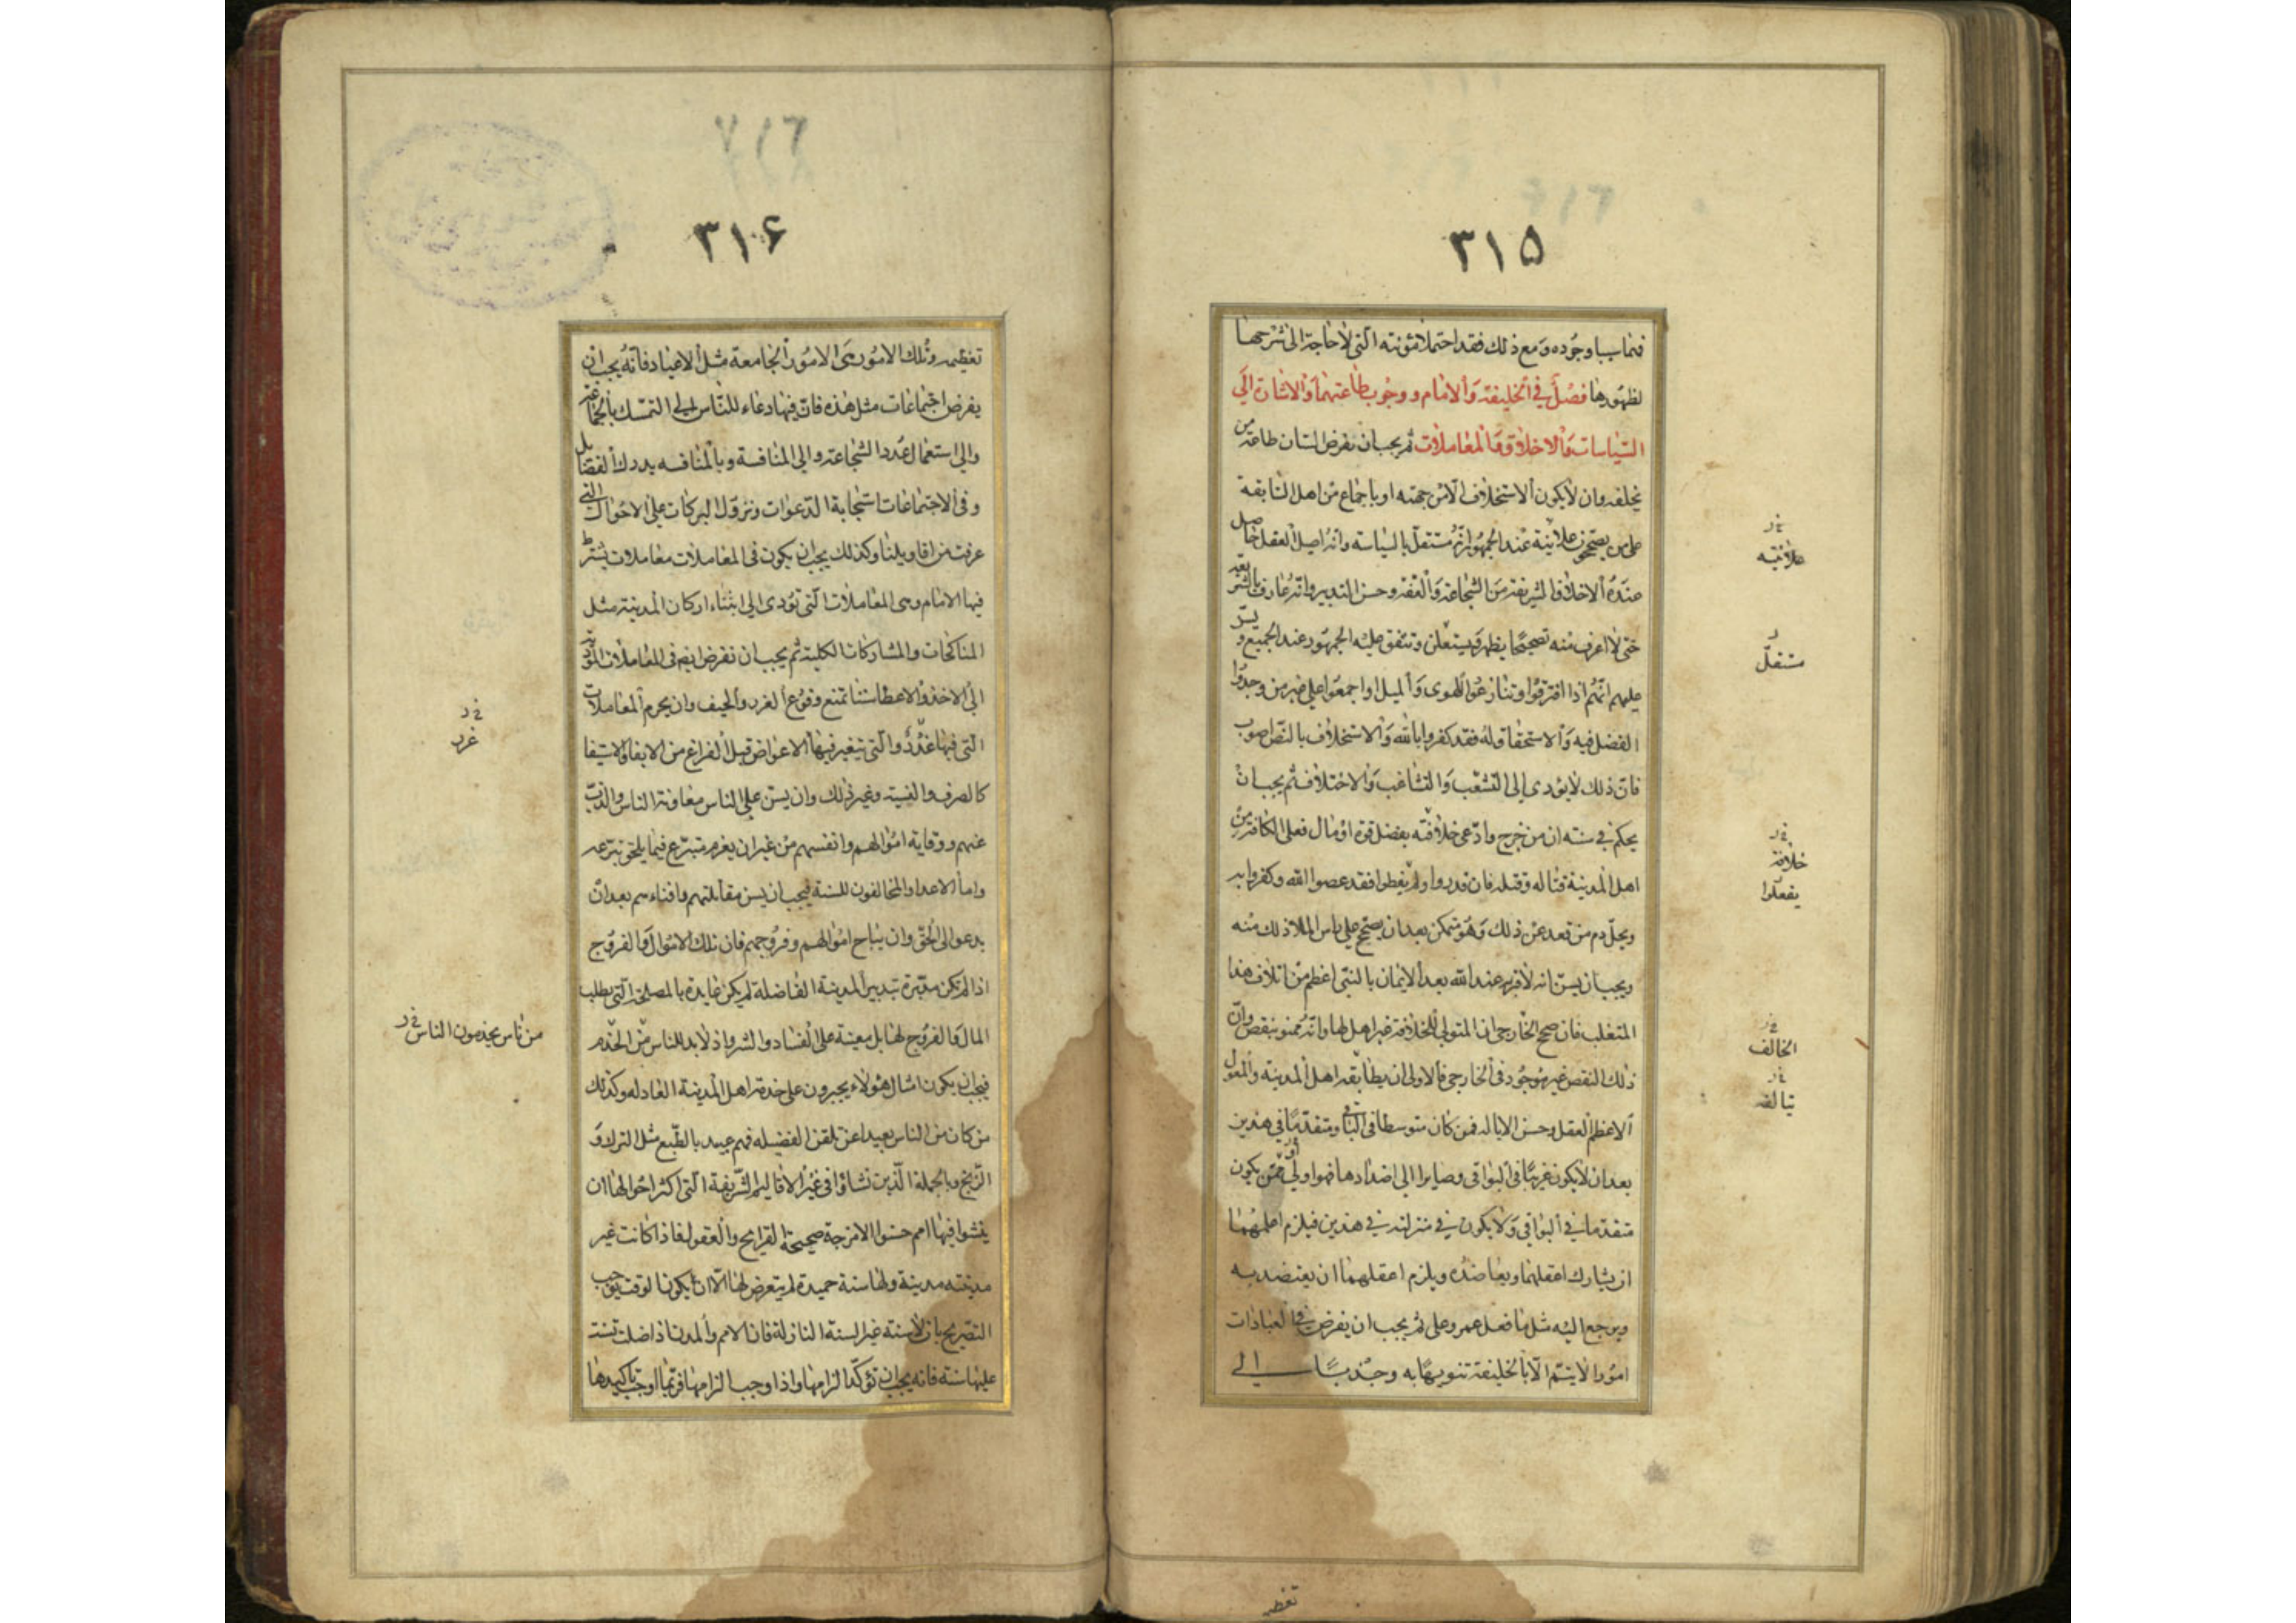 ٣١۵
فيما سيا وجوده ومع ذلك فقد احتملا مؤنته التي لا حاجة الى شرحها
لظهورها فصل في الخليفة والامام ووجوب طاعتهما والاشارة الى
السياسات والاخلاق والمعاملات ثم يجب ان يفرض السان طاعة من
يخلفه وان لا يكون الاستخلاف الا من جهته او باجماع من اهل السابقة
على من يصححون علانية عند الجمهور انه مستقل بالسياسة وانه اصيل العقل حاصل
عنده الاخلاق الشريفة من الشجاعة والعفة وحسن التدبير وانه عارف بالشريعة
حتى لا اعرف منه تصحيحا يظهر ويستعلن ويتفق عليه الجمهور عند الجميع ويسن
عليهم انهم اذا افترقوا وتنازعوا للهوى والميل او اجمعوا على غير من وجدوا
الفضل فيه والاستحقاق له فقد كفروا بالله والاستخلاف بالنص اصوب
فان ذلك لا يؤدى الى التشعب والتشاغب والاختلاف ثم يجب ان
يحكم في سنته ان من خرج وادعى خلافته بفضل قوة او مال فعلى الكافة من
اهل المدينة قتاله وقتله فان قدروا ولم يفعلوا فقد عصوا الله وكفروا به
ويحل دم من قعد عن ذلك وهو متمكن بعد ان يصحح على راس الملا ذلك منه
ويجب ان يسن انه لا قربة عند الله بعد الايمان بالنبي اعظم من اتلاف هذا
المتغلب فان صحح الخارجي ان المتولي للخلافة غير اهل لها وانه ممنو بنقص وان
ذلك النقص غير موجود في الخارجي فالاولى ان يطابقه اهل المدينة والمعول
الاعظم العقل وحسن الايالة فمن كان متوسطا في الباقي ومتقدما في هذين
بعد ان لا يكون غريبا في البواقي وصايرا الى اضدادها فهو اولى ممن يكون
متقدما في البواقي ولا يكون في منزلته في هذين فيلزم اعلمهما
ان يشارك اعقلهما ويعاضده ويلزم اعقلهما ان يعتضد به
ويرجع اليه مثل ما فعل عمر وعلى ثم يجب ان يفرض في العبادات
امورا لا يتم الا بالخليفة تنويها به وجذبا الى
علانيته
مستقل
خلافة
يفعلوا
الخالف
تعظ
٣١۶
تعظيمه وتلك الامور هى الامور الجامعة مثل الاعياد فانه يجب ان
يفرض اجتماعات مثل هذه فان فيها دعاء للناس الى التمسك بالجماعة
والى استعمال عدد الشجاعة والى المنافسة وبالمنافسة يدرك الفضايل
وفى الاجتماعات استجابة الدعوات ونزول البركات على الاحوال التى
عرفت من اقاويلنا وكذلك يجب ان يكون في المعاملات معاملات يشترط
فيها الامام وهى المعاملات التى تؤدى الى ابتناء اركان المدينة مثل
المناكحات والمشاركات الكلية ثم يجب ان يفرض ايضا فى المعاملات المؤدية
الى الاخذ والاعطا سننا تمنع وقوع الغرر والحيف وان يحرم المعاملات
التى فيها غدر والتى تتغير فيها الاعواض قبل الفراغ من الايفا والاستيفا
كالصرف والنسية وغير ذلك وان يسن على الناس معاونة الناس والذب
عنهم ووقاية اموالهم وانفسهم من غير ان يغرم متبرع فيما يلحق بتبرعه
واما الاعدا والمخالفون للسنة فيجب ان يسن مقاتلتهم وافناءهم بعد ان
يدعوا الى الحق وان يباح اموالهم وفروجهم فان تلك الاموال والفروج
اذا لم تكن مدبرة بتدبير المدينة الفاضلة لم يكن عايدة بالمصلحة التى يطلب
المال والفروج لها بل معينة على الفساد والشر واذ لا بد للناس من الخدم
فيجب ان يكون امثال هؤلاء يجبرون على خدمة اهل المدينة العادلة وكذلك
من كان من الناس بعيدا عن تلقن الفضيلة فهم عبيد بالطبع مثل الترك و
الزنج وبالجملة الذين نشاوا فى غير الاقاليم الشريفة التى اكثر احوالها ان
ينشوا فيها امم حسنوا الامزجة صحيحة القرايح والعقول فاذا كانت غير
مدينته مدينة ولها سنة حميدة لم يتعرض لها الا ان يكون الوقت يوجب
التصريح بان لا سنة غير السنة النازلة فان الامم والمدن اذا ضلت فسنت
عليها سنة فانه يجب ان تؤكد الزامها واذا وجب الزامها فربما اوجب تاكيدها
غرر
من ناس يخدمون الناس